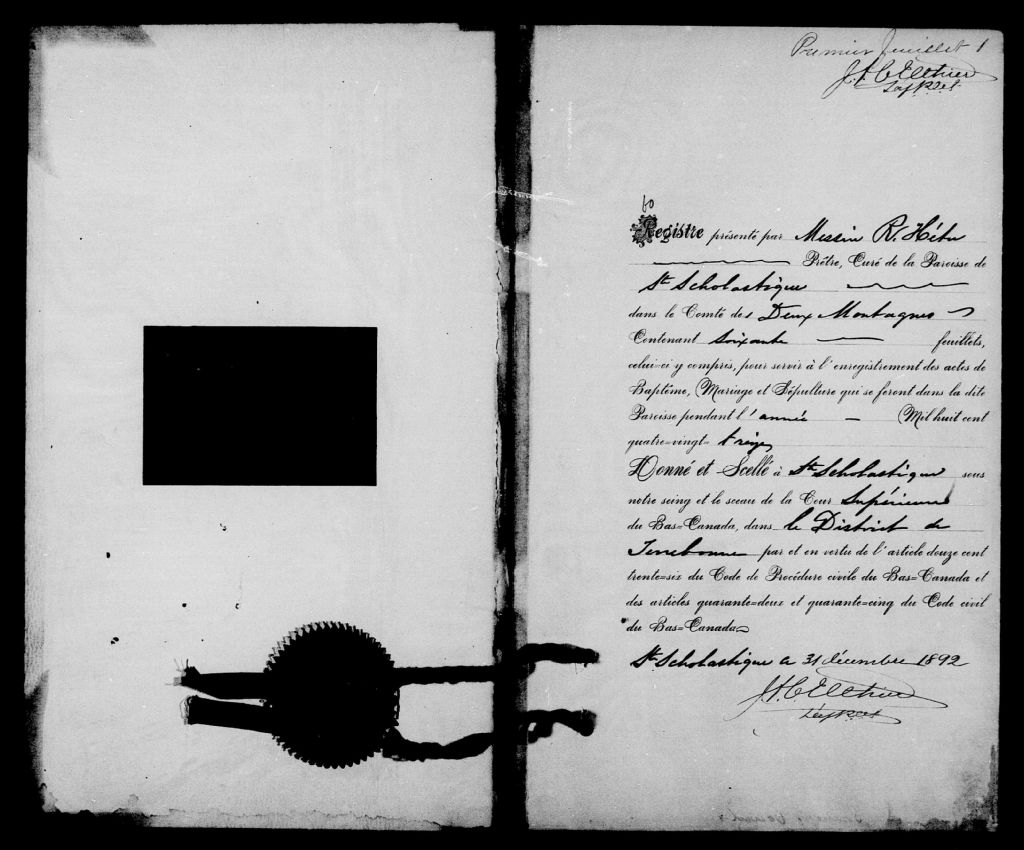 Premier feuillet 1
60
Registre présenté par Messire R.
Prêtre, Curé de la Paroisse de
St Scholastique
dans le Comté des Deux Montagnes
Contenant soixante feuillets,
celui-ci y compris, pour servir à l'enregistrement des actes de
Baptême, Mariage et Sépulture qui se feront dans la dite
Paroisse pendant l'année Mil huit cent
quatre-vingt- treize
Donné et Scellé à Ste Scholastique sous
notre seing et le sceau de la Cour Supérieure
du Bas-Canada, dans le District de
Terrebonne par et en vertu de l'article douze cent
trente-six du Code de Procédure civile du Bas-Canada et
des articles quarante-deux et quarante-cinq du Code civil
du Bas-Canada
Ste Scholastique ce 31 décembre 1892